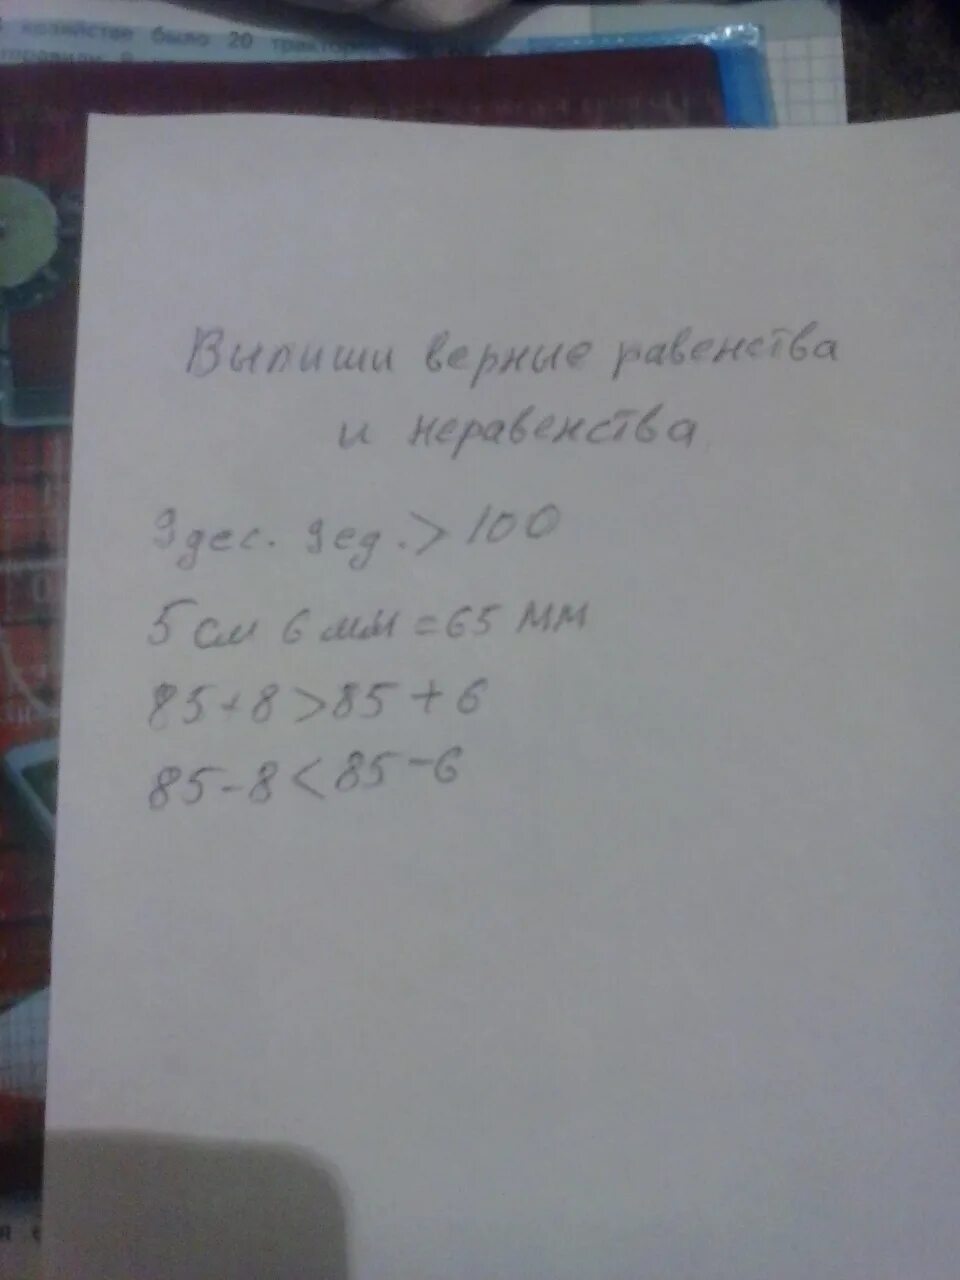 хозяйстве было 20
Выпиши верные равенства
и неравенства
9дес. 9ед. > 100
5 см 6 мм = 65 мм
85+8>85+6
85-8<85-6